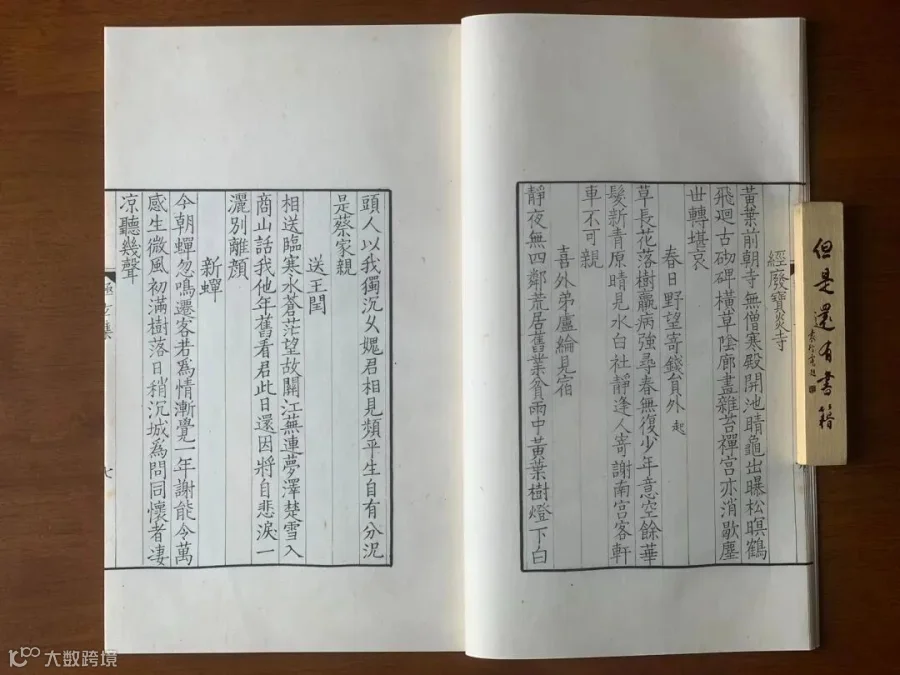 經廢寶炎寺
黃葉前朝寺無僧寒殿開池晴龜出曝松暝鶴
飛廻古砌碑橫草陰廊畫雜苔禪宫亦消歇塵
世轉堪哀
春日野望寄錢員外 起
草長花落樹羸病強尋春無復少年意空餘華
髮新青原晴見水白社靜逢人寄謝南宫客軒
車不可親
喜外弟盧綸見宿
靜夜無四鄰荒居舊業貧雨中黃葉樹燈下白
頭人以我獨沉久媿君相見頻平生自有分況
是蔡家親
送王閏
相送臨寒水蒼茫望故關江蕪連夢澤楚雪入
商山話我他年舊看君此日還因將自悲淚一
灑別離顏
新蟬
今朝蟬忽鳴遷客若爲情漸覺一年謝能令萬
感生微風初滿樹落日稍沉城爲問同懷者凄
凉聽幾聲
七
但是還有書籍
大数跨境